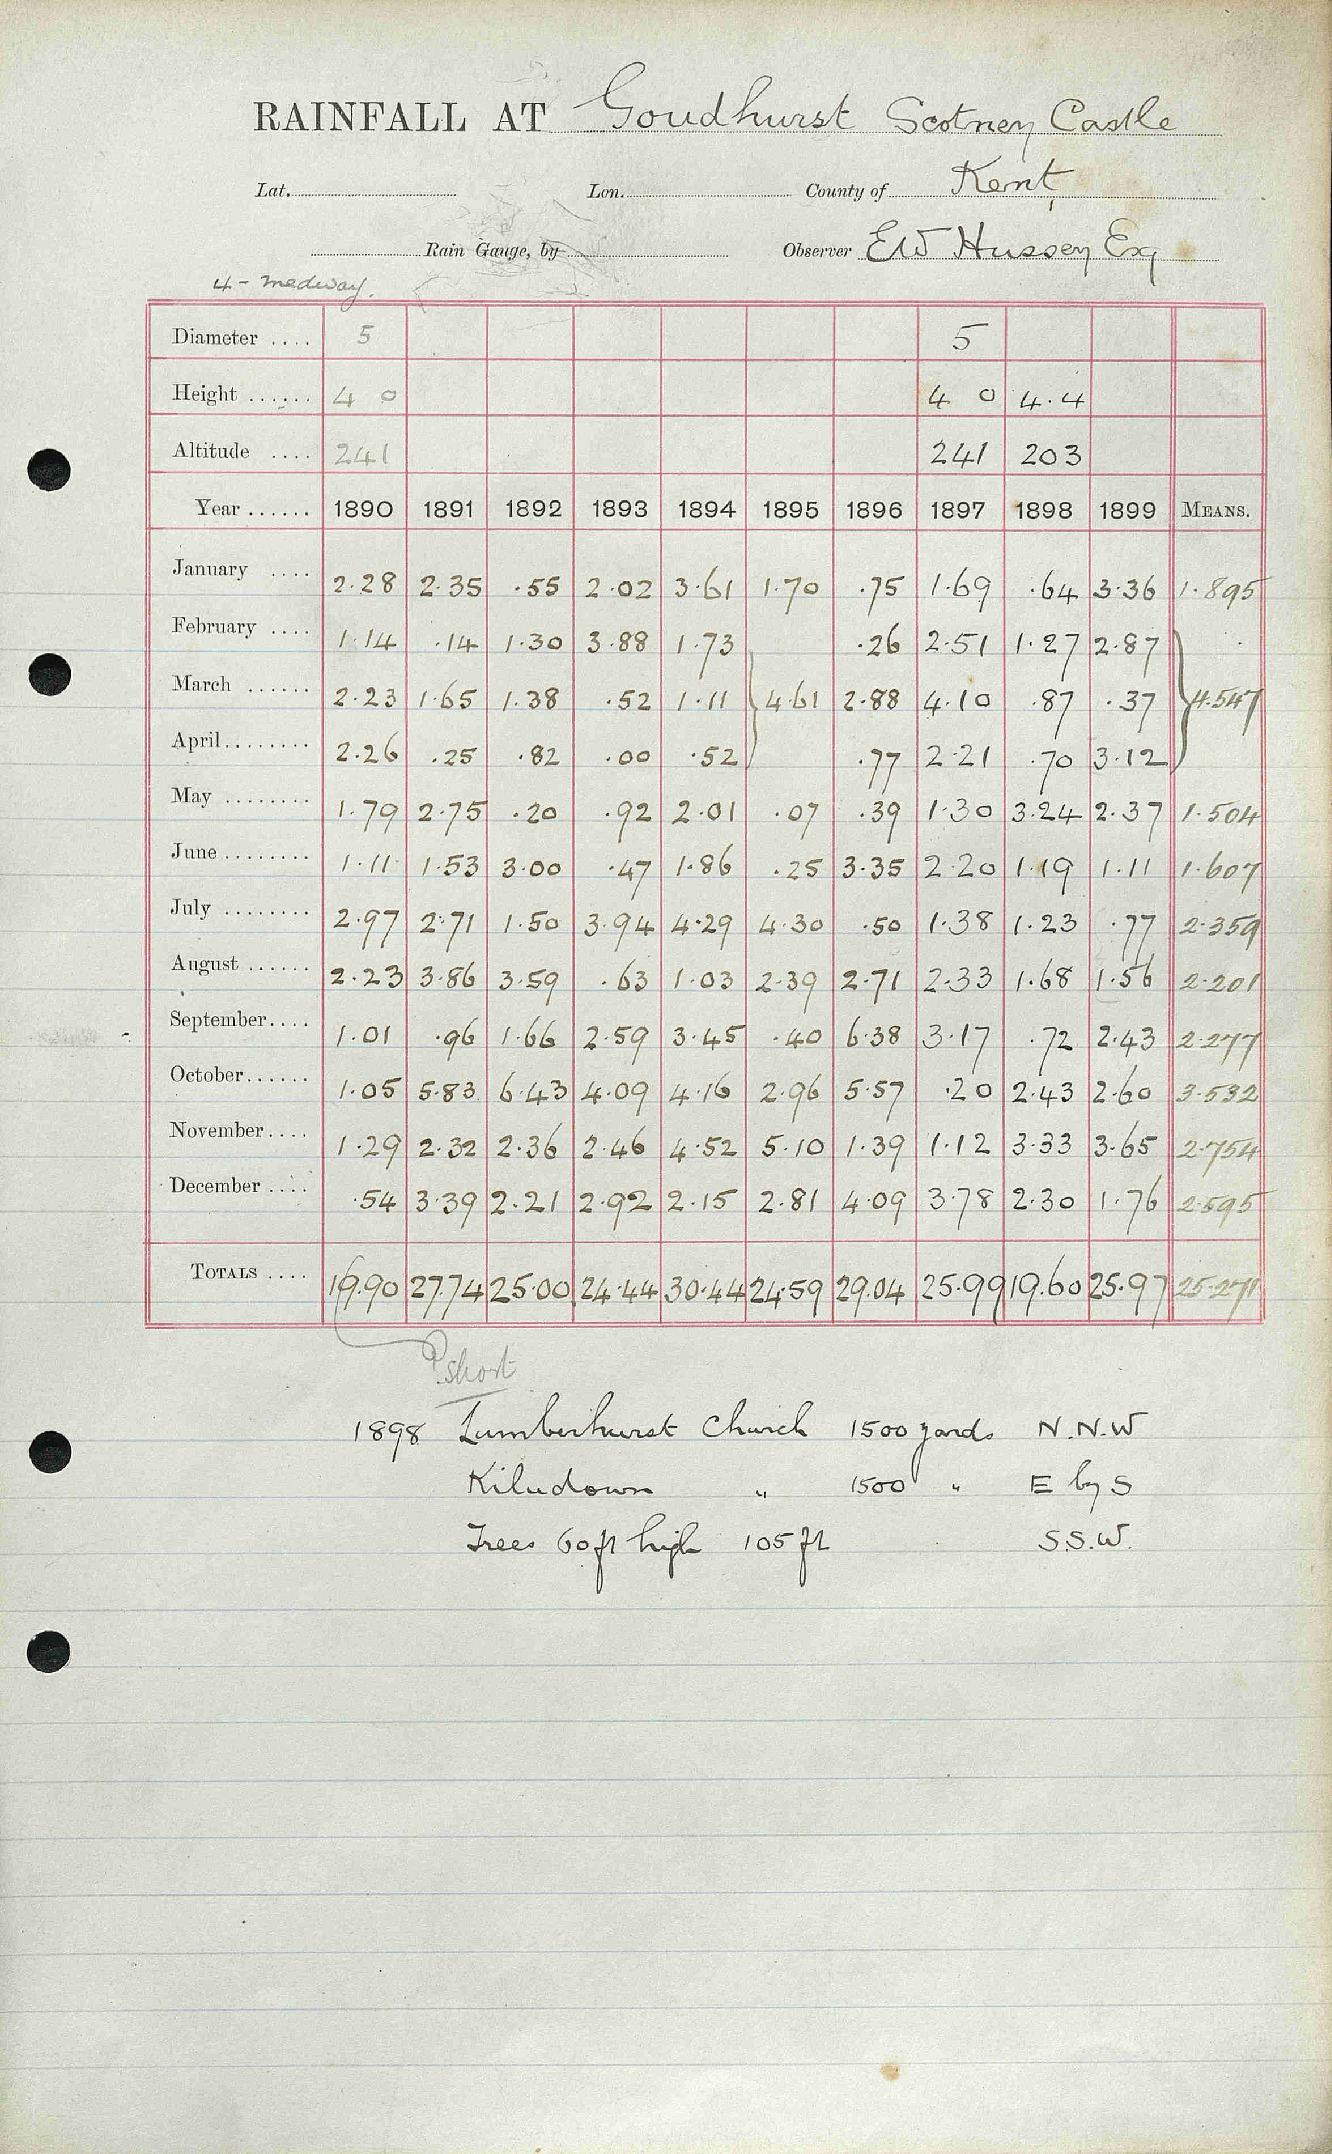 RAINFALL AT Goudhurst Scotney Castle
Lat. Lon. County of Kent
Rain Gauge, by Observer EW Hussey Esq
4 - Medway.
Diameter .... 5 5
Height ...... 4 0 4 0 4.4
Altitude .... 241 241 203
Year ...... 1890 1891 1892 1893 1894 1895 1896 1897 1898 1899 MEANS.
January .... 2.28 2.35 .55 2.02 3.61 1.70 .75 1.69 .64 3.36 1.895
February .... 1.14 .14 1.30 3.88 1.73 .26 2.51 1.27 2.87
March ...... 2.23 1.65 1.38 .52 1.11 4.61 2.88 4.10 .87 .37 4.547
April........ 2.26 .25 .82 .00 .52 .77 2.21 .70 3.12
May ........ 1.79 2.75 .20 .92 2.01 .07 .39 1.30 3.24 2.37 1.504
June ........ 1.11 1.53 3.00 .47 1.86 .25 3.35 2.20 1.19 1.11 1.607
July ........ 2.97 2.71 1.50 3.94 4.29 4.30 .50 1.38 1.23 .77 2.359
August ...... 2.23 3.86 3.59 .63 1.03 2.39 2.71 2.33 1.68 1.56 2.201
September.... 1.01 .96 1.66 2.59 3.45 .40 6.38 3.17 .72 2.43 2.277
October...... 1.05 5.83 6.43 4.09 4.16 2.96 5.57 .20 2.43 2.60 3.532
November.... 1.29 2.32 2.36 2.46 4.52 5.10 1.39 1.12 3.33 3.65 2.754
December .... .54 3.39 2.21 2.92 2.15 2.81 4.09 3.78 2.30 1.76 2.595
TOTALS .... 19.90 27.74 25.00 24.44 30.44 24.59 29.04 25.99 19.60 25.97 25.271
? short
1898 Lumberhurst Church 1500 yards N.N.W
Kilndown " 1500 " E by S
Trees 60 ft high 105 ft S.S.W.